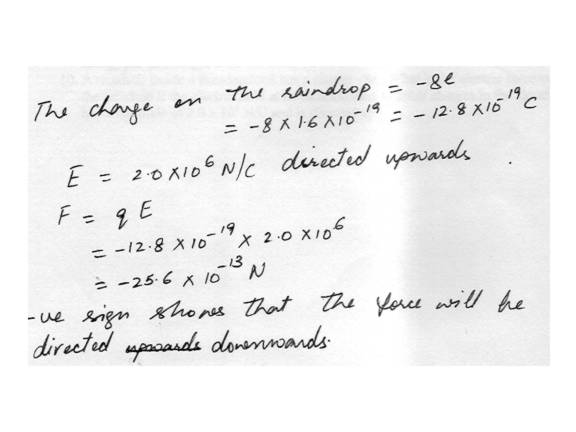 The charge on the raindrop = -8e
= -8 X 1.6 X 10^-19 = -12.8 X 10^-19 C
E = 2.0 X 10^6 N/C directed upwards.
F = q E
= -12.8 X 10^-19 X 2.0 X 10^6
= -25.6 X 10^-13 N
-ve sign shows that the force will be
directed upwards downwards.